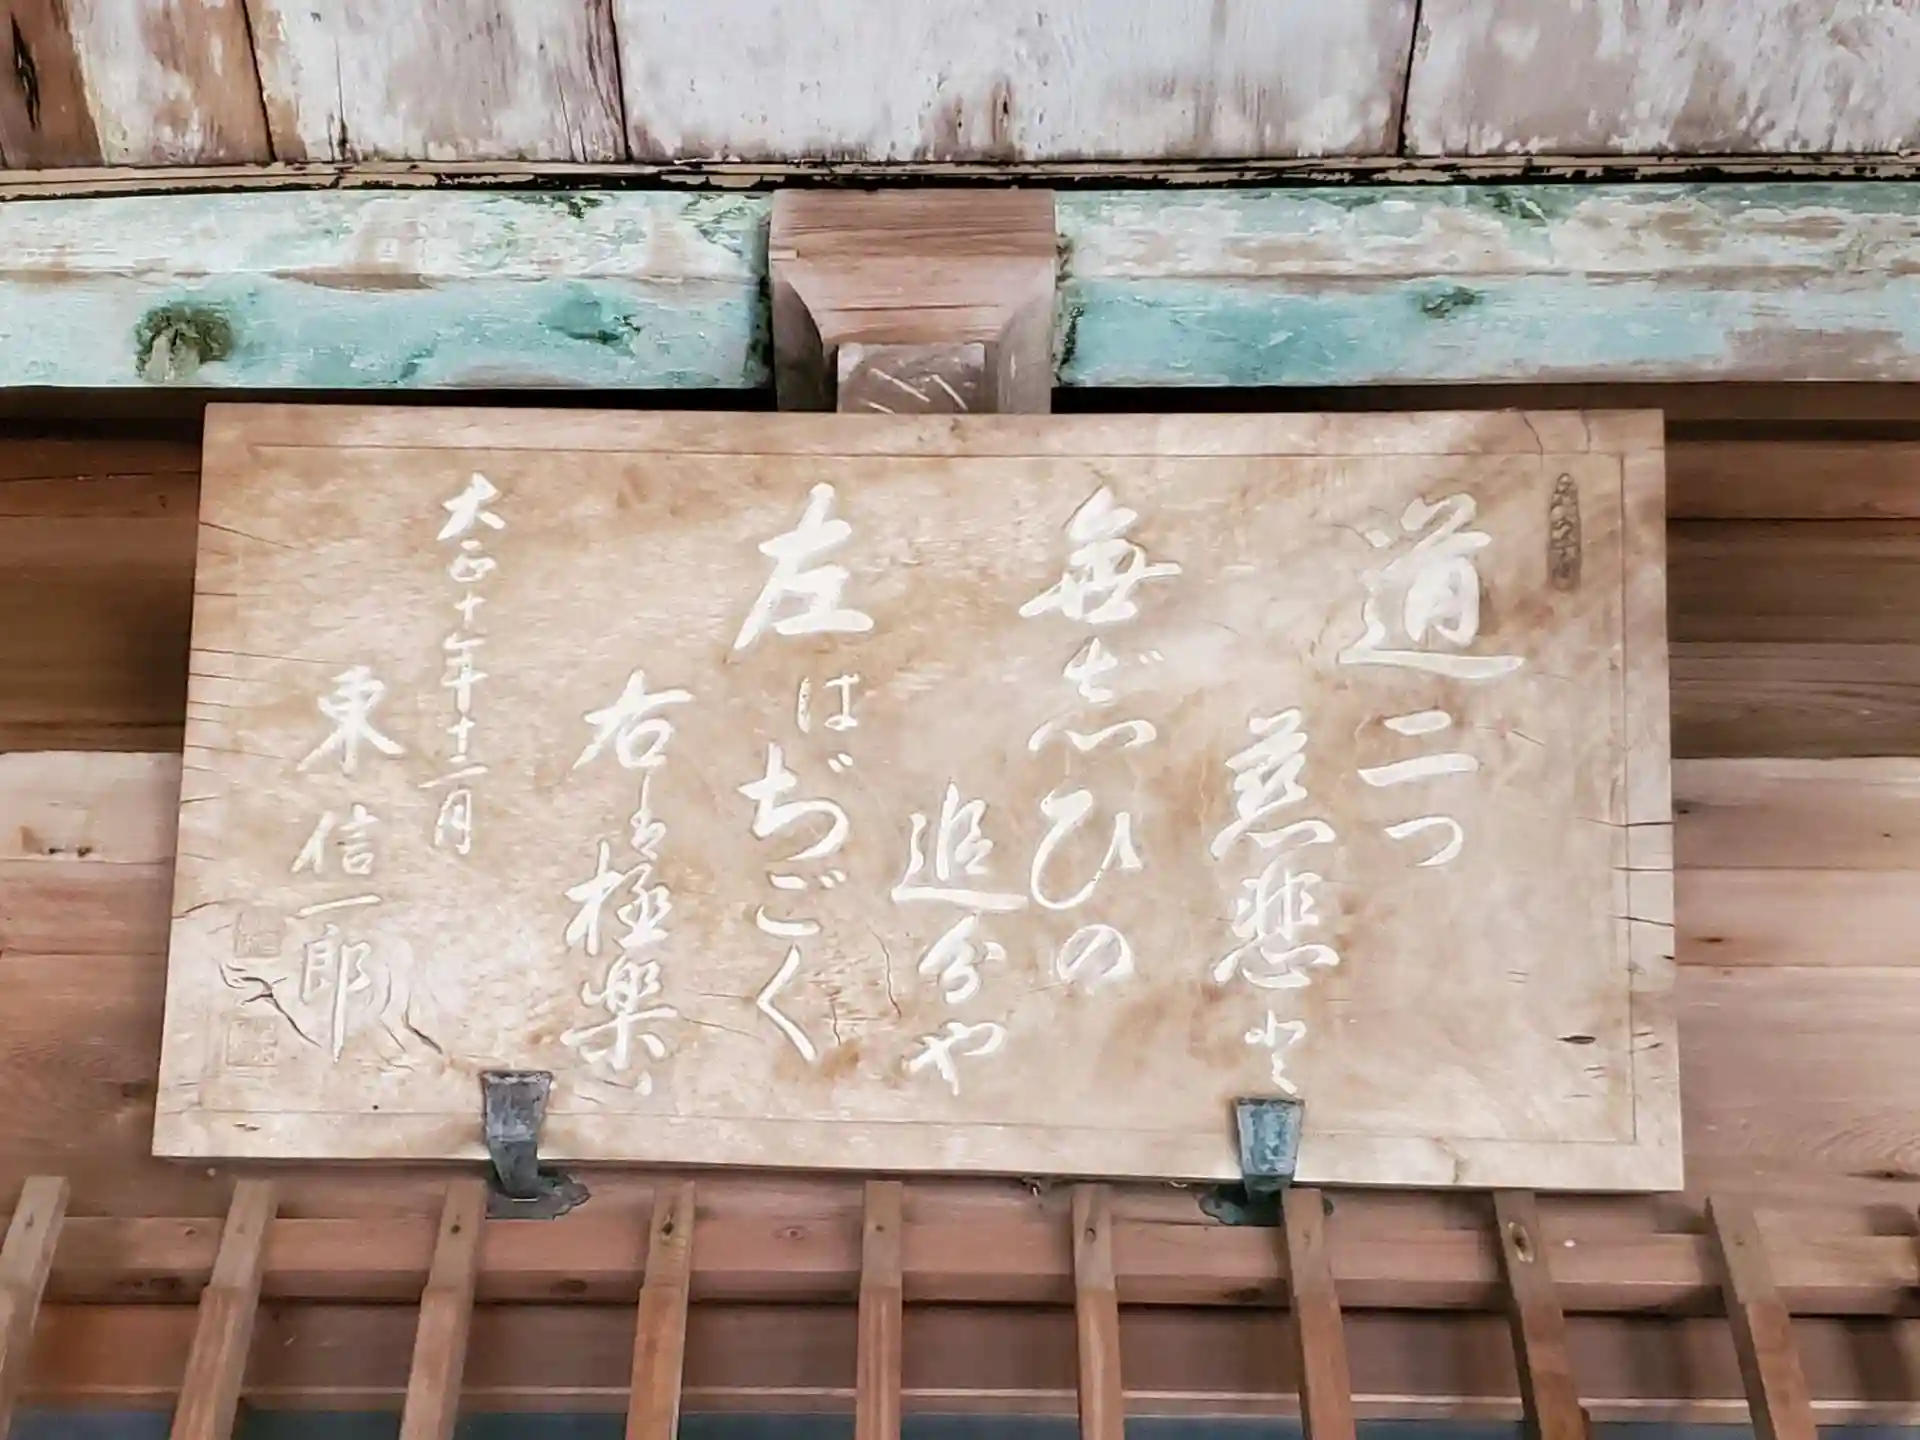 道二つ
慈悲と
無志゛ひの
追分や
左はぢごく
右は極楽
大正十年十二月
東信一郎